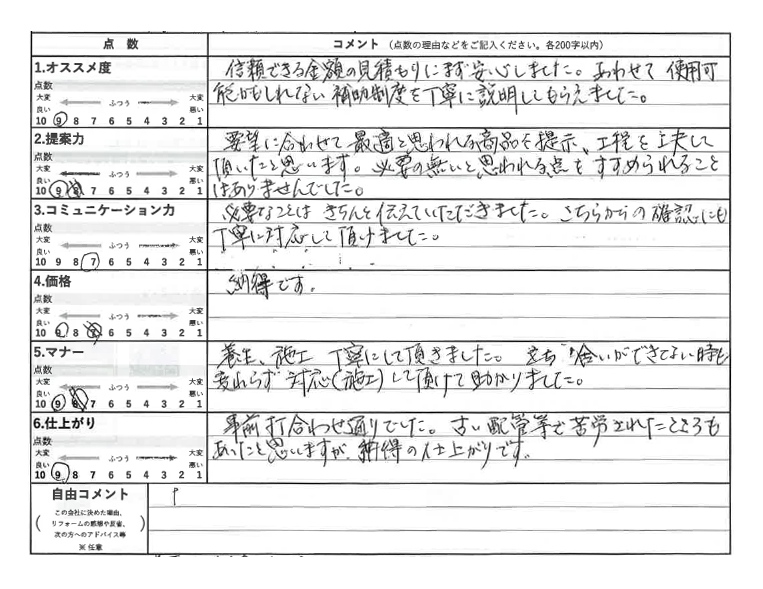 点 数 コメント (点数の理由などをご記入ください。各200字以内)
1.オススメ度
点数
大変 良い ふつう 大変 悪い
10 9 8 7 6 5 4 3 2 1
信頼できる金額の見積もりにまず安心しました。あわせて 使用可
能かもしれない 補助制度を丁寧に説明してもらえました。
2.提案力
点数
大変 良い ふつう 大変 悪い
10 9 8 7 6 5 4 3 2 1
要望に合わせて最適と思われる商品を提示、工程を工夫して
頂いたと思います。必要の無いと思われる点をすすめられること
はありませんでした。
3.コミュニケーション力
点数
大変 良い ふつう 大変 悪い
10 9 8 7 6 5 4 3 2 1
必要なことは きちんと伝えていただきました。こちらからの確認にも
丁寧に対応して頂けました。
4.価格
点数
大変 良い ふつう 大変 悪い
10 9 8 7 6 5 4 3 2 1
納得です。
5.マナー
点数
大変 良い ふつう 大変 悪い
10 9 8 7 6 5 4 3 2 1
養生、施工 丁寧にして頂きました。 立ち合いができてない時も
変わらず 対応(施工)して頂けて助かりました。
6.仕上がり
点数
大変 良い ふつう 大変 悪い
10 9 8 7 6 5 4 3 2 1
事前打合わせ通りでした。古い配管等で苦労されたところも
あったと思いますが、納得の仕上がりです。
自由コメント
(この会社に決めた理由、
リフォームの感想や反省、
次の方へのアドバイス等)
※任意